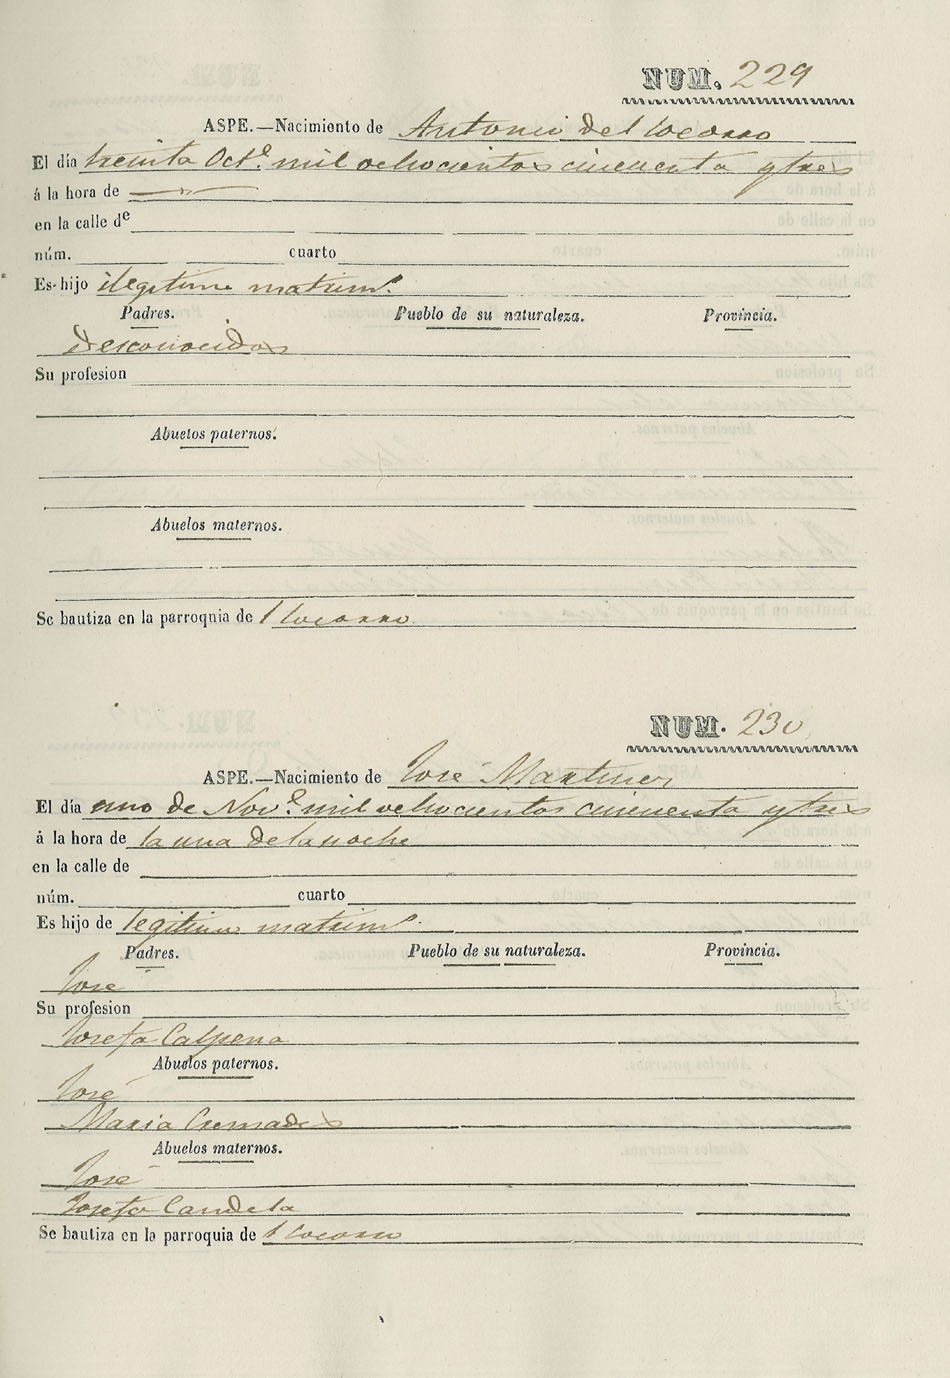 NUM. 229
ASPE.—Nacimiento de Antonio del Socorro
El día treinta Oct.e mil ochocientos cincuenta y tres
á la hora de
en la calle de
núm. cuarto
Es hijo ilegitimo matrim.o
Padres. Pueblo de su naturaleza. Provincia.
desconocidos
Su profesion
Abuelos paternos.
Abuelos maternos.
Se bautiza en la parroquia de l Socorro
NUM. 230
ASPE.—Nacimiento de José Martinez
El día uno de Nov.e mil ochocientos cincuenta y tres
á la hora de la una de la noche
en la calle de
núm. cuarto
Es hijo de legitimo matrim.o
Padres. Pueblo de su naturaleza. Provincia.
José
Su profesion
Josefa Calpena
Abuelos paternos.
José
Maria Cremades
Abuelos maternos.
José
Josefa Candela
Se bautiza en la parroquia de l Socorro